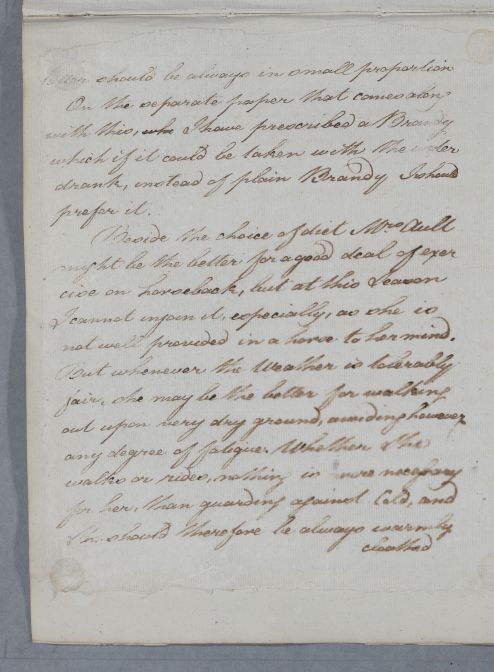 should be always in small proportion
On the separate paper that comes alon
with this, I have prescribed a Brandy
which if it could be taken with the water
drank, instead of plain Brandy I should
prefer it.
Beside the choice of diet Mrs Ault
might be the better for a good deal of exer
cise on horseback, but at this Season
I cannot injoin it, especially, as she is
not well provided in a horse to her mind.
But whenever the Weather is tolerably
fair, she may be the better for walking
out upon very dry ground, avoiding however
any degree of fatigue. Whether She
walks or rides, nothing is more necessary
for her, than guarding against Cold, and
She should therefore be always warmly
cloathed